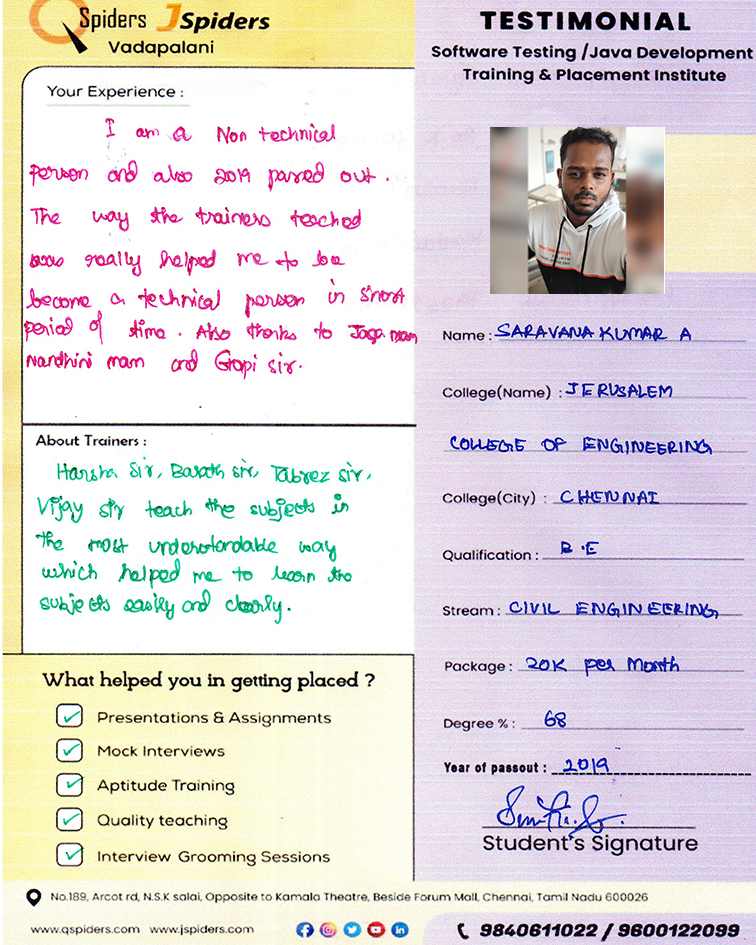 QSpiders JSpiders
Vadapalani
Your Experience :
I am a Non technical
person and also 2019 passed out.
The way the trainers teached
was really helped me to be
become a technical person in short
period of time. Also thanks to Jaga mam
Nandhini mam and Gopi sir.
About Trainers :
Harsha Sir, Barath sir, Tabrez sir,
Vijay sir teach the subjects in
the most understandable way
which helped me to learn the
subjects easily and clearly.
What helped you in getting placed ?
Presentations & Assignments
Mock Interviews
Aptitude Training
Quality teaching
Interview Grooming Sessions
TESTIMONIAL
Software Testing /Java Development
Training & Placement Institute
Name : SARAVANA KUMAR A
College(Name) : JERUSALEM
COLLEGE OF ENGINEERING
College(City) : CHENNAI
Qualification : B.E
Stream : CIVIL ENGINEERING
Package : 20K per Month
Degree % : 68
Year of passout : 2019
Student's Signature
No.189, Arcot rd, N.S.K salai, Opposite to Kamala Theatre, Beside Forum Mall, Chennai, Tamil Nadu 600026
www.qspiders.com www.jspiders.com
9840611022 / 9600122099